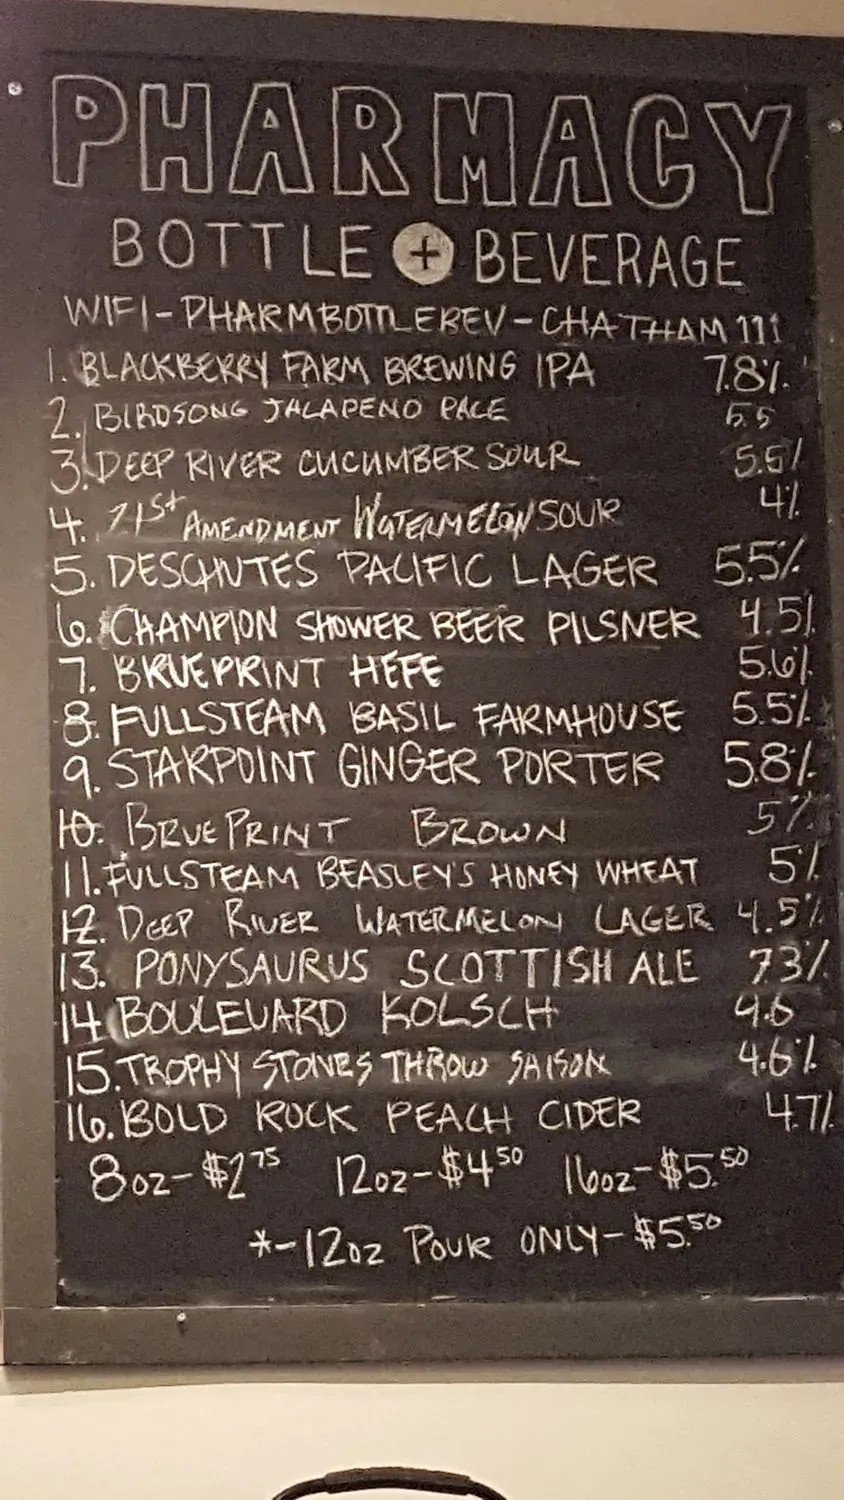 PHARMACY
BOTTLE + BEVERAGE
WIFI-PHARMBOTTLEBEV-CHATHAM111
1. BLACKBERRY FARM BREWING IPA 7.8%
2. BIRDSONG JALAPENO PALE 5.5
3. DEEP RIVER CUCUMBER SOUR 5.5%
4. 21st AMENDMENT WATERMELON SOUR 4%
5. DESCHUTES PACIFIC LAGER 5.5%
6. CHAMPION SHOWER BEER PILSNER 4.5%
7. BRUEPRINT HEFE 5.6%
8. FULLSTEAM BASIL FARMHOUSE 5.5%
9. STARPOINT GINGER PORTER 5.8%
10. BRUEPRINT BROWN 5%
11. FULLSTEAM BEASLEY'S HONEY WHEAT 5%
12. DEEP RIVER WATERMELON LAGER 4.5%
13. PONYSAURUS SCOTTISH ALE 7.3%
14 BOULEVARD KOLSCH 4.6
15. TROPHY STONES THROW SAISON 4.6%
16. BOLD ROCK PEACH CIDER 4.7%
8oz-$2.75 12oz-$4.50 16oz-$5.50
*-12oz POUR ONLY-$5.50